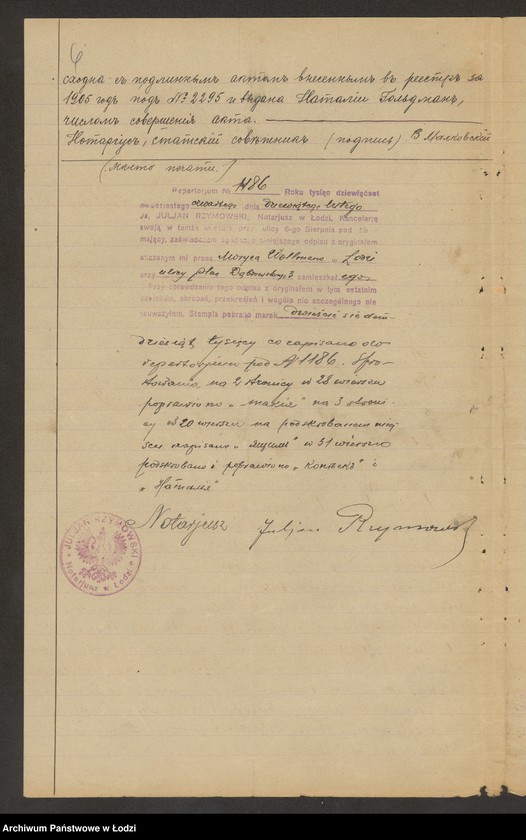 сходна съ подлиннымъ актомъ внесеннымъ въ реестръ за
1905 годъ подъ № 2295 и выдана Наталіи Гольдманъ,
числомъ совершенія акта.
Нотаріусъ, статскій совѣтникъ (подпись) В Малковскій
(мѣсто печати.)
Repertorjum № 1186 Roku tysiąc dziewięćset
dwudziestego czwartego dnia
Ja, JULJAN RZYMOWSKI, Notarjusz w Łodzi, Kancelarję
swoją w temże mieście przy ulicy 6-go Sierpnia pod
mający, zaświadczam zgodność niniejszego odpisu z oryginałem
okazanym mi przez Moryca Wollmana w Łodzi
przy ulicy Plac Dąbrowskiego 3 zamieszkałego
Przy sprawdzeniu tego odpisu z oryginałem w tym ostatnim
dowisów, skrobań, przekreśleń i wogóle nic szczególnego nie
zauważyłem. Stempla pobrano marek dzwieście siedem-
dziesiąt tysięcy co zapisano do
repertorjum pod № 1186. Spro-
stowania na 2 stronicy w 28 wierszu
poprawiono na 3 stroni-
cy w 20 wierszu na podskrobanem miej-
scu napisano w 31 wierszu
podskrobano i poprawiono i
„Наталія"
Notarjusz Juljan Rzymowski
JULJAN RZYMOWSKI
Notarjusz w Łodzi
Archiwum Państwowe w Łodzi